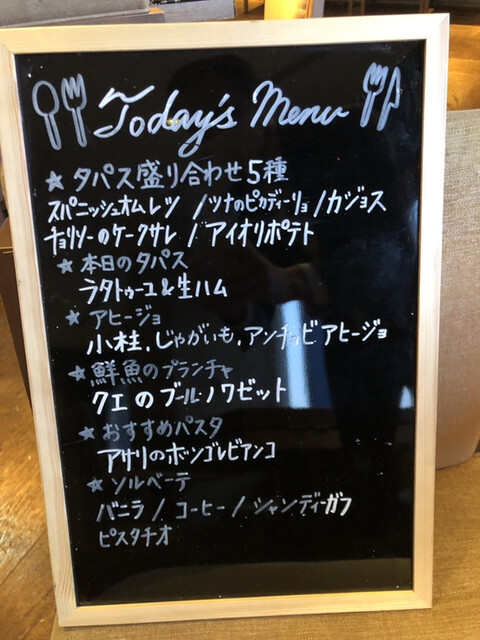 Today's Menu
★ タパス盛り合わせ5種
スパニッシュオムレツ / ツナのピカディーリョ / カジョス
チョリソーのケークサレ / アイオリポテト
★ 本日のタパス
ラタトゥーユ&生ハム
★ アヒージョ
小柱,じゃがいも,アンチョビアヒージョ
★ 鮮魚のプランチャ
クエのブール・ノワゼット
★ おすすめパスタ
アサリのボンゴレビアンコ
★ ソルベーテ
バニラ / コーヒー / シャンディーガフ
ピスタチオ